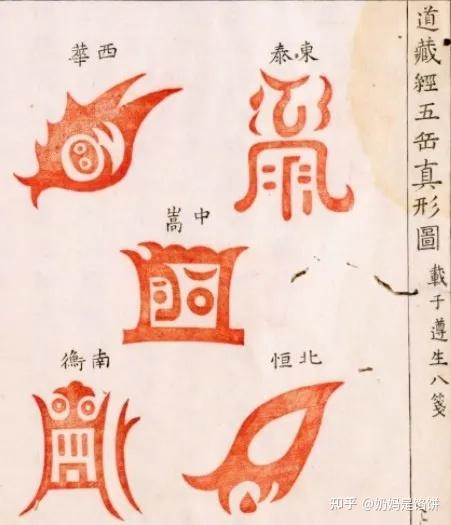 道藏經五岳真形圖
載于遵生八箋
東泰
西華
中嵩
北恒
南衡
知乎 @奶妈是馅饼